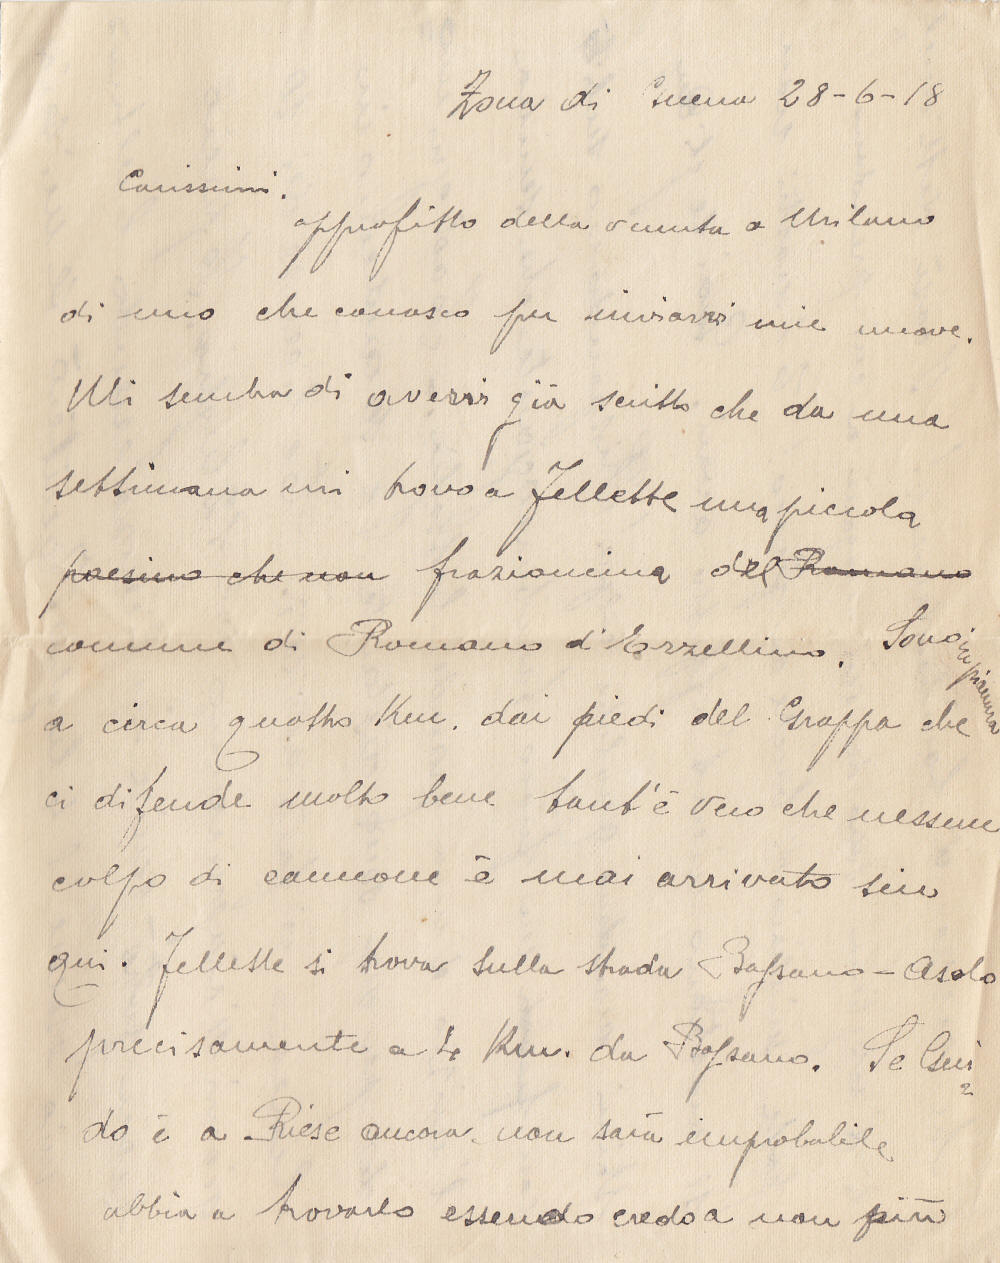 Zona di Guerra 28-6-18
Carissimi.
approfitto della venuta a Milano
di uno che conosco per inviarvi mie nuove.
Mi sembra di avervi già scritto che da una
settimana mi trovo a Fellette una piccola
paesino che non frazioncina del Romano
comune di Romano d'Ezzellino. Sono in pianura
a circa quattro Km. dai piedi del Grappa che
ci difende molto bene tant'è vero che nessun
colpo di cannone è mai arrivato sin
qui. Fellette si trova sulla strada Bassano-Asolo
precisamente a 4 Km. da Bassano. Se Gui
do è a Riese ancora non sarà improbabile
abbia a trovarlo essendo credo a non più